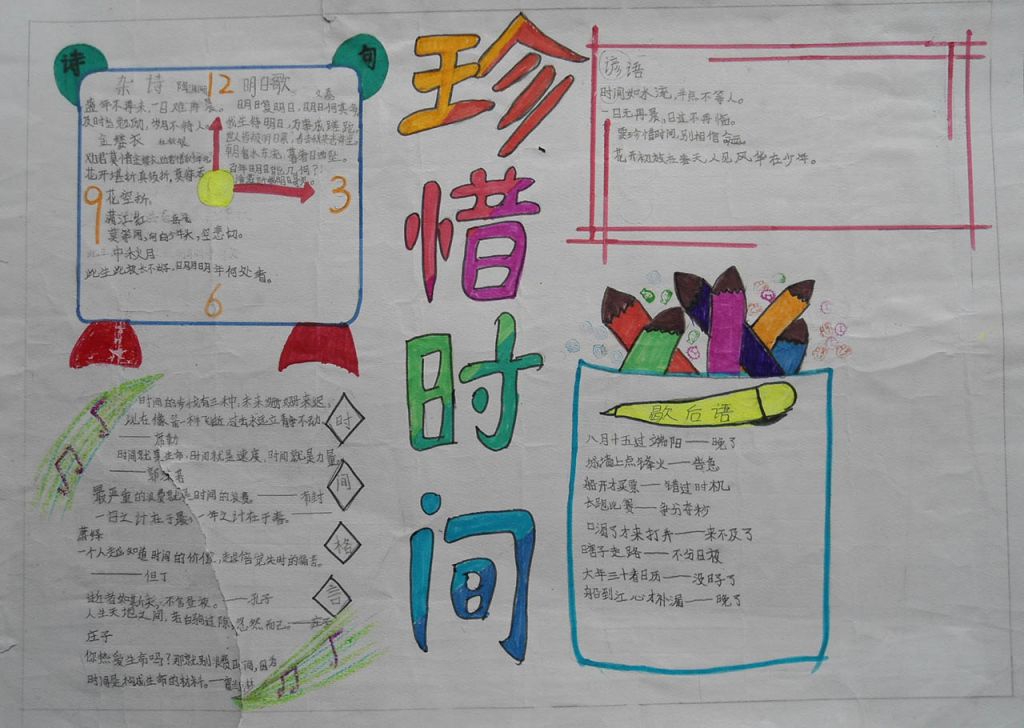 诗
句
杂诗
12
明日歌
盛年不再来，一日难再晨。
及时当勉励，岁月不待人。
金缕衣
劝君莫惜金缕衣，劝君惜取少年时。
花开堪折直须折，莫待无
花空折。
满江红 岳飞
莫等闲，白了少年头，空悲切。
中秋月
此生此夜长不好，明月明年何处看。
明日复明日，明日何其多
我生待明日，万事成蹉跎
朝看水东流，暮看日西坠。
百年明日能几何？
9
3
6
珍惜时间
谚语
时间如水流，半点不等人。
一日无再晨，日过不再悔。
要珍惜时间，别相信命运。
花开初放在春天，人见风华在少年。
时间格言
时间的步伐有三种，未来姗姗来迟，
现在像箭一样飞逝，过去永远立静不动。
——席勒
时间就是生命，时间就是速度，时间就是力量。
——郭沫若
最严重的浪费就是时间的浪费。——布封
一日之计在于晨，一年之计在于春。
萧绎
一个人越知道时间的价值，越倍觉失时的痛苦。
——但丁
逝者如斯夫，不舍昼夜。——孔子
人生天地之间，若白驹过隙，忽然而已。——庄子
庄子
你热爱生命吗？那就别浪费时间，因为
时间是构成生命的材料。——富兰克林
歇后语
八月十五过端阳——晚了
城墙上点烽火——告急
船开才买票——错过时机
长跑比赛——争分夺秒
口渴了才来打井——来不及了
瞎子走路——不分日夜
大年三十看日历——没日子了
船到江心才补漏——晚了